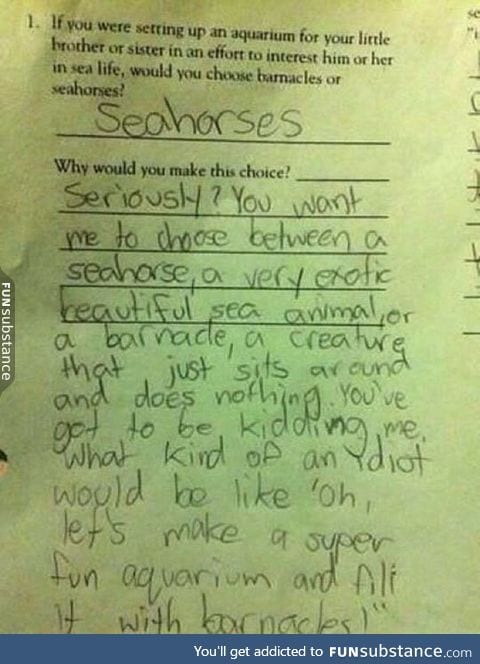 1. If you were setting up an aquarium for your little
brother or sister in an effort to interest him or her
in sea life, would you choose barnacles or
seahorses?
Seahorses
Why would you make this choice?
Seriously? You want
me to choose between a
seahorse, a very exotic
beautiful sea animal, or
a barnacle, a creature
that just sits around
and does nothing. You've
got to be kidding me.
What kind of an ydiot
would be like 'oh,
let's make a super
fun aquarium and fill
it with barnacles!"
FUNsubstance
You'll get addicted to FUNsubstance.com